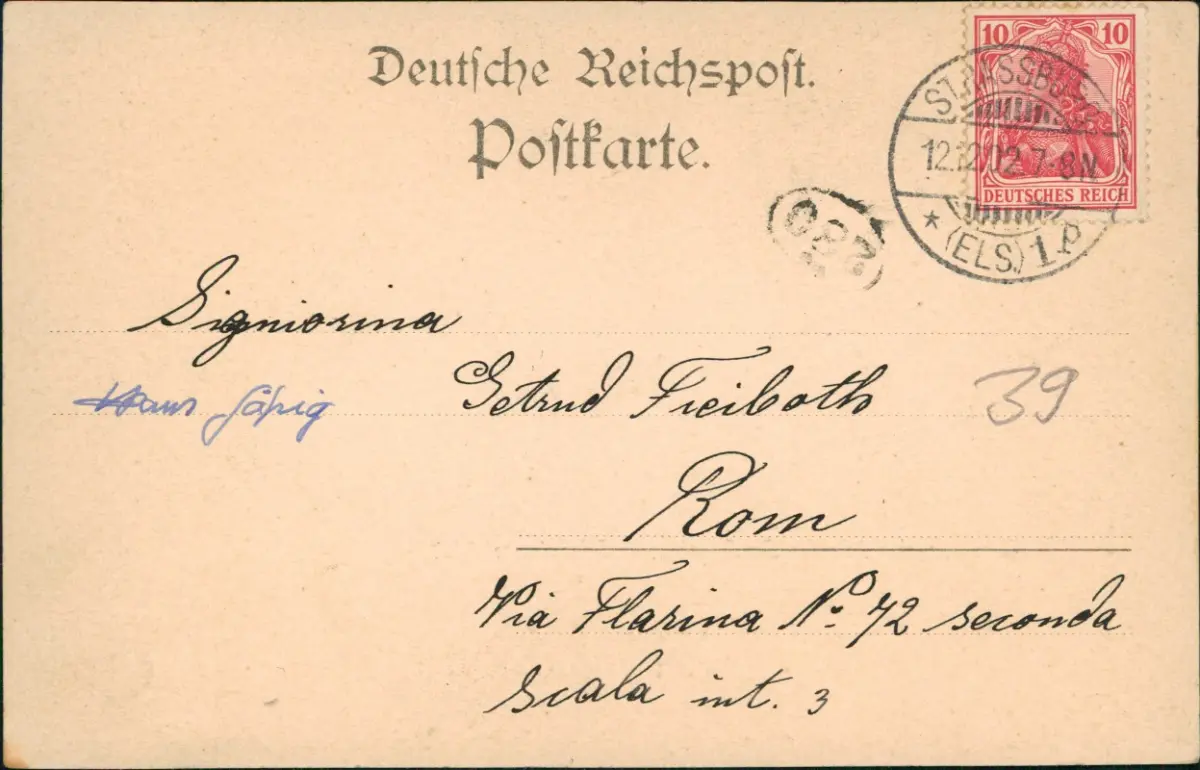 Deutsche Reichspost.
Postkarte.
10 10
DEUTSCHES REICH
STRASSBURG
12.12.02.7-8N.
* (ELS.) 1.P
Signiorina
Getrud Freiboth
39
Rom
Via Flarina No. 72 seconda
scala int. 3